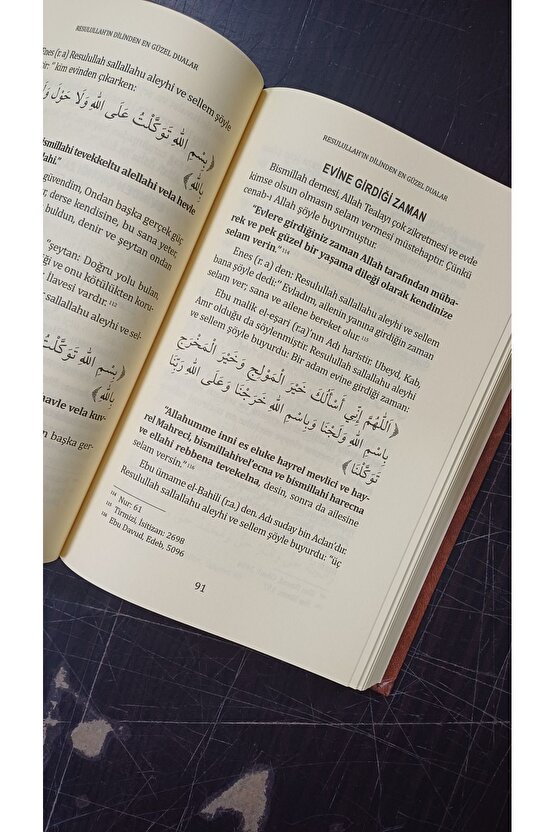 RESULULLAH'IN DİLİNDEN EN GÜZEL DUALAR
Enes (r.a) Resulullah sallallahu aleyhi ve sellem şöyle
kim evinden çıkarken:
بِسْمِ اللهِ تَوَكَّلْتُ عَلَى اللهِ وَلَا حَوْلَ
بِاللهِ﴾
tevekkeltu alellahi vela hevle
güvendim, Ondan başka gerçek güç
derse kendisine, bu sana yeter,
buldun, denir ve şeytan ondan
"şeytan: Doğru yolu bulan,
ve onu kötülükten koru-
ilavesi vardır.
sallallahu aleyhi ve sel-
﴿بِسْمِ اللهِ تَوَكَّلْتُ
بِاللهِ﴾
vela kuv-
başka ger-
RESULULLAH'IN DİLİNDEN EN GÜZEL DUALAR
EVİNE GİRDİĞİ ZAMAN
Bismillah demesi, Allah Tealayı çok zikretmesi ve evde
kimse olsun olmasın selam vermesi müstehaptır. Çünkü
cenab-ı Allah şöyle buyurmuştur.
"Evlere girdiğiniz zaman Allah tarafından müba-
rek ve pek güzel bir yaşama dileği olarak kendinize
selam verin." 114
Enes (r.a) den: Resulullah sallallahu aleyhi ve sellem
bana şöyle dedi:" Evladım, ailenin yanına girdiğin zaman
selam ver; sana ve ailene bereket olur. 115
Ebu malik el-eşari (r.a)'nun Adı haristir. Ubeyd, Kab,
Amr olduğu da söylenmiştir. Resulullah sallallahu aleyhi
ve sellem şöyle buyurdu: Bir adam evine girdiği zaman:
﴿اَللّٰهُمَّ إِنِّي أَسْأَلُكَ خَيْرَ الْمَوْلِجِ وَخَيْرَ الْمَخْرَجِ
بِاسْمِ اللهِ وَلَجْنَا وَبِاسْمِ اللهِ خَرَجْنَا وَعَلَى اللهِ رَبِّنَا
تَوَكَّلْنَا﴾
"Allahumme inni es eluke hayrel mevlici ve hay-
rel Mahreci, bismillahivel'ecna ve bismillahi harecna
ve ellahi rebbena tevekelna, desin, sonra da ailesine
selam versin." 116
Ebu ümame el-Bahili (r.a.) den. Adı suday bin Aclan'dır.
Resulullah sallallahu aleyhi ve sellem şöyle buyurdu: "üç
114 Nur: 61
115 Tirmizi, İsitizan: 2698
116 Ebu Davud, Edeb, 5096
91